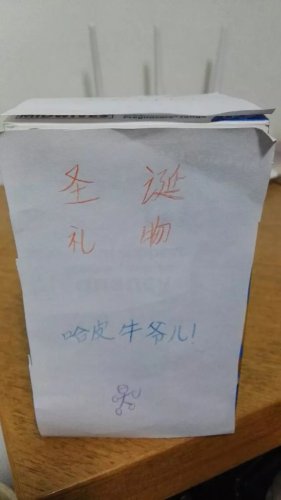 圣 诞
礼 物
哈皮牛爷儿!